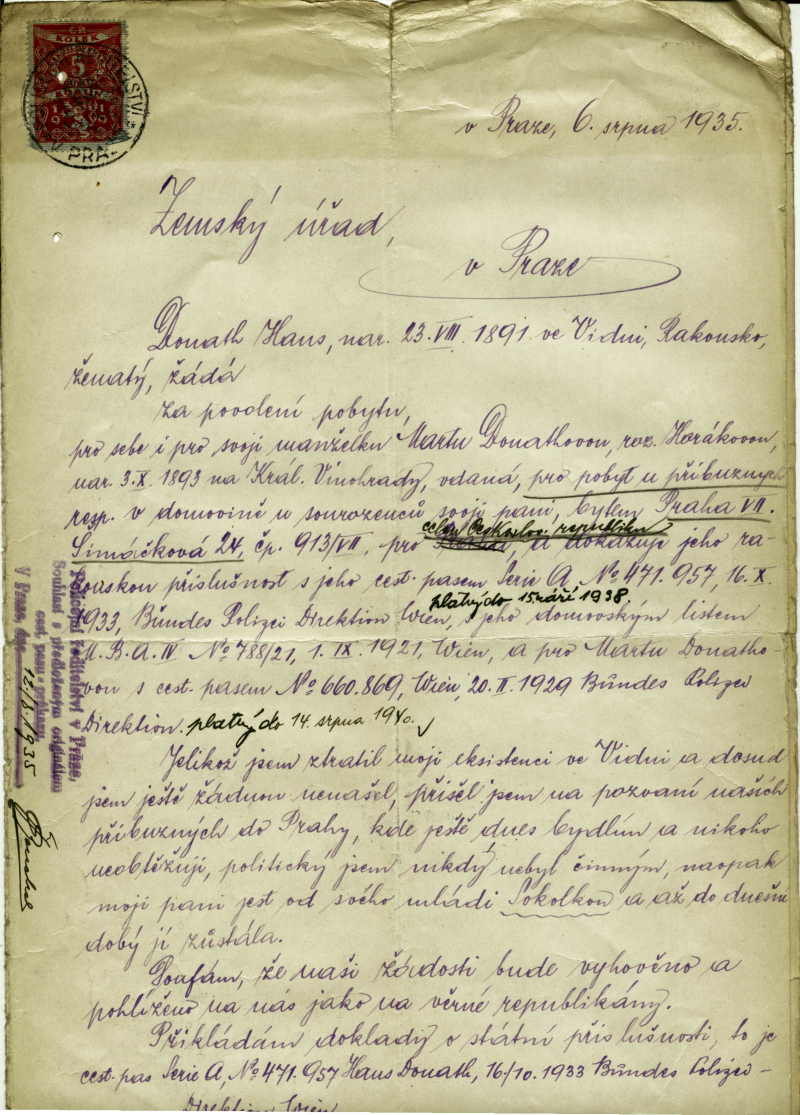 KOLEK
5
V PRA
v Praze, 6. srpna 1935.
Zemský úřad,
v Praze
Donath Hans, nar. 23. VIII. 1891 ve Vídni, Rakousko,
ženatý, žádá
za povolení pobytu,
pro sebe i pro svoji manželku Martu Donathovou, roz. Horákovou,
nar. 3. X. 1893 na Král. Vinohrady, vdaná, pro pobyt u příbuzných
resp. v domovině u sourozenců svojí paní, bytem Praha VII.
celou Českoslov. republiku
Simáčková 24, čp. 913/VII, pro a dokazuje jeho ra-
kouskou příslušnost s jeho cest. pasem Serie A, No 471.957, 16. X.
platný do 15 září 1938.
1933, Bŭndes Polizei Direktion Wien, s jeho domovským listem
M. B. A. IV No 788/21, 1. IX. 1921, Wien, a pro Martu Donatho-
vou s cest. pasem No 660.869, Wien, 20. II. 1929 Bŭndes Polizei
Direktion. platný do 14. srpna 1940.
Jelikož jsem ztratil moji eksistenci ve Vídni a dosud
jsem ještě žádnou nenašel, přišel jsem na pozvaní našich
příbuzných do Prahy, kde ještě dnes bydlím a nikoho
neobtěžuji, politický jsem nikdý nebyl činným, naopak
moji pani jest od svého mládi Sokolkou a až do dnešní
dobý jí zůstála.
Doufám, že naši žádosti bude vyhověno a
pohlíženo na nás jako na věrné republikány.
Přikládám doklady o státní příslušnosti, to je
cest. pas Serie A, No 471.957 Hans Donath, 16/10. 1933 Bŭndes Polizei-
Direktion Wien
Policejní ředitelství v Praze,
Souhlasí s předloženým originálem
cest. pasu
V Praze, dne 12/8 1935